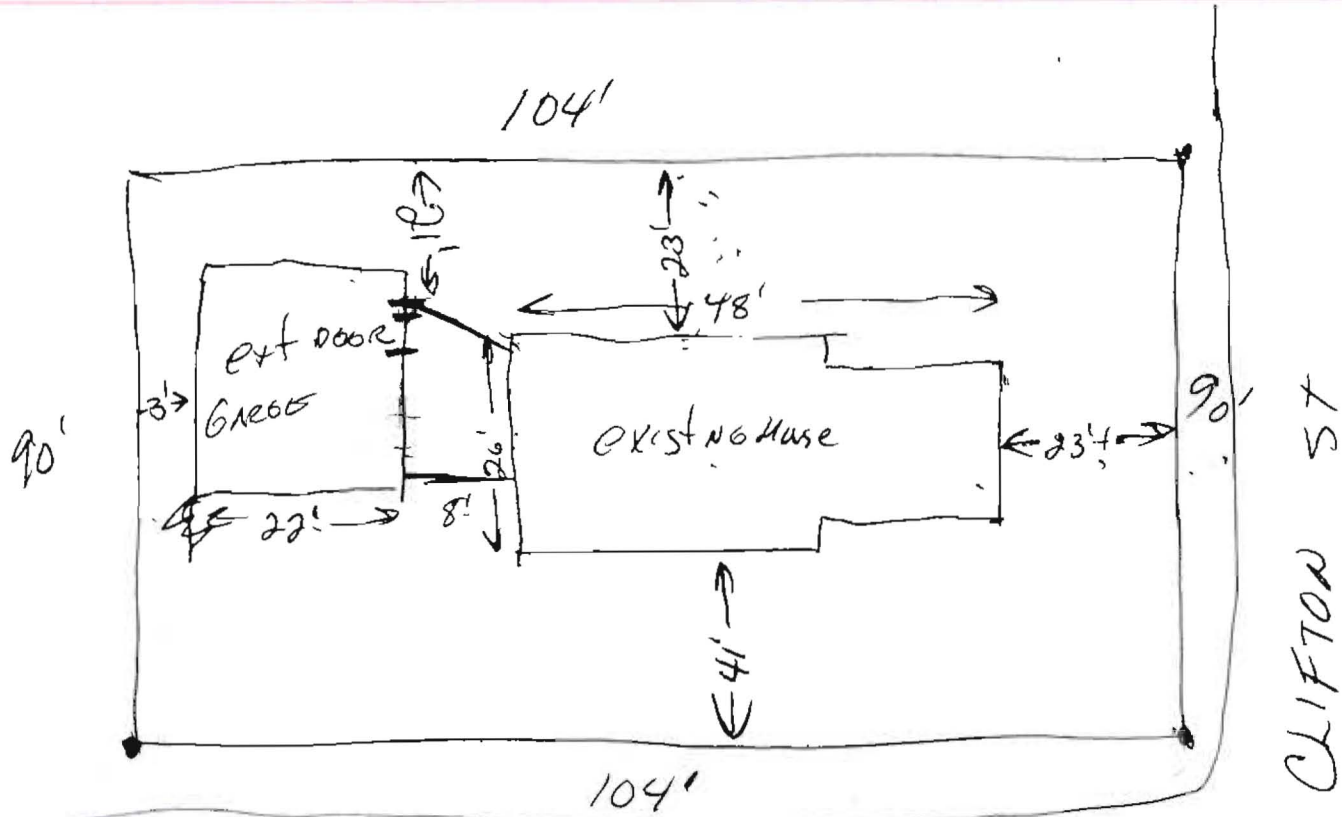 104'
18'
23'
48'
ext DOOR
GAREGE
3'
90'
26'
existNG House
23'±
90'
22'
8'
41'
104'
CLIFTON ST